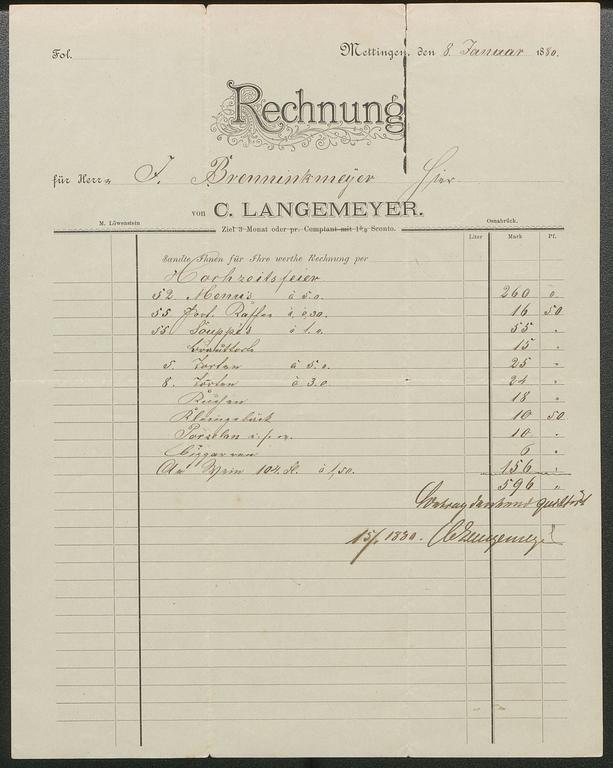 Fol.
Mettingen, den 8. Januar 1880.
Rechnung
für Herrn J. Brenninkmeyer Hier
von C. LANGEMEYER.
M. Löwenstein Osnabrück.
Ziel 3 Monat oder pr. Comptant mit 1% Sconto.
Liter Mark Pf.
Sandte Ihnen für Ihre werthe Rechnung per
Hochzeitsfeier
52 Menus à 5.0. 260 0
55 Port. Kaffee à 0,30. 16 50
55 Souppes à 1.0. 55 "
15 "
5. Torten à 5.0. 25 "
8. Torten à 3.0. " 24 "
Kuchen 18 "
Kleingebäck 10 50
Porzelan u.s.w. 10 "
Ciggarren 6 "
An Wein 104 Fl. à 1,50. 156 "
596 "
Betrag dankend quittirt
C Langemeyer